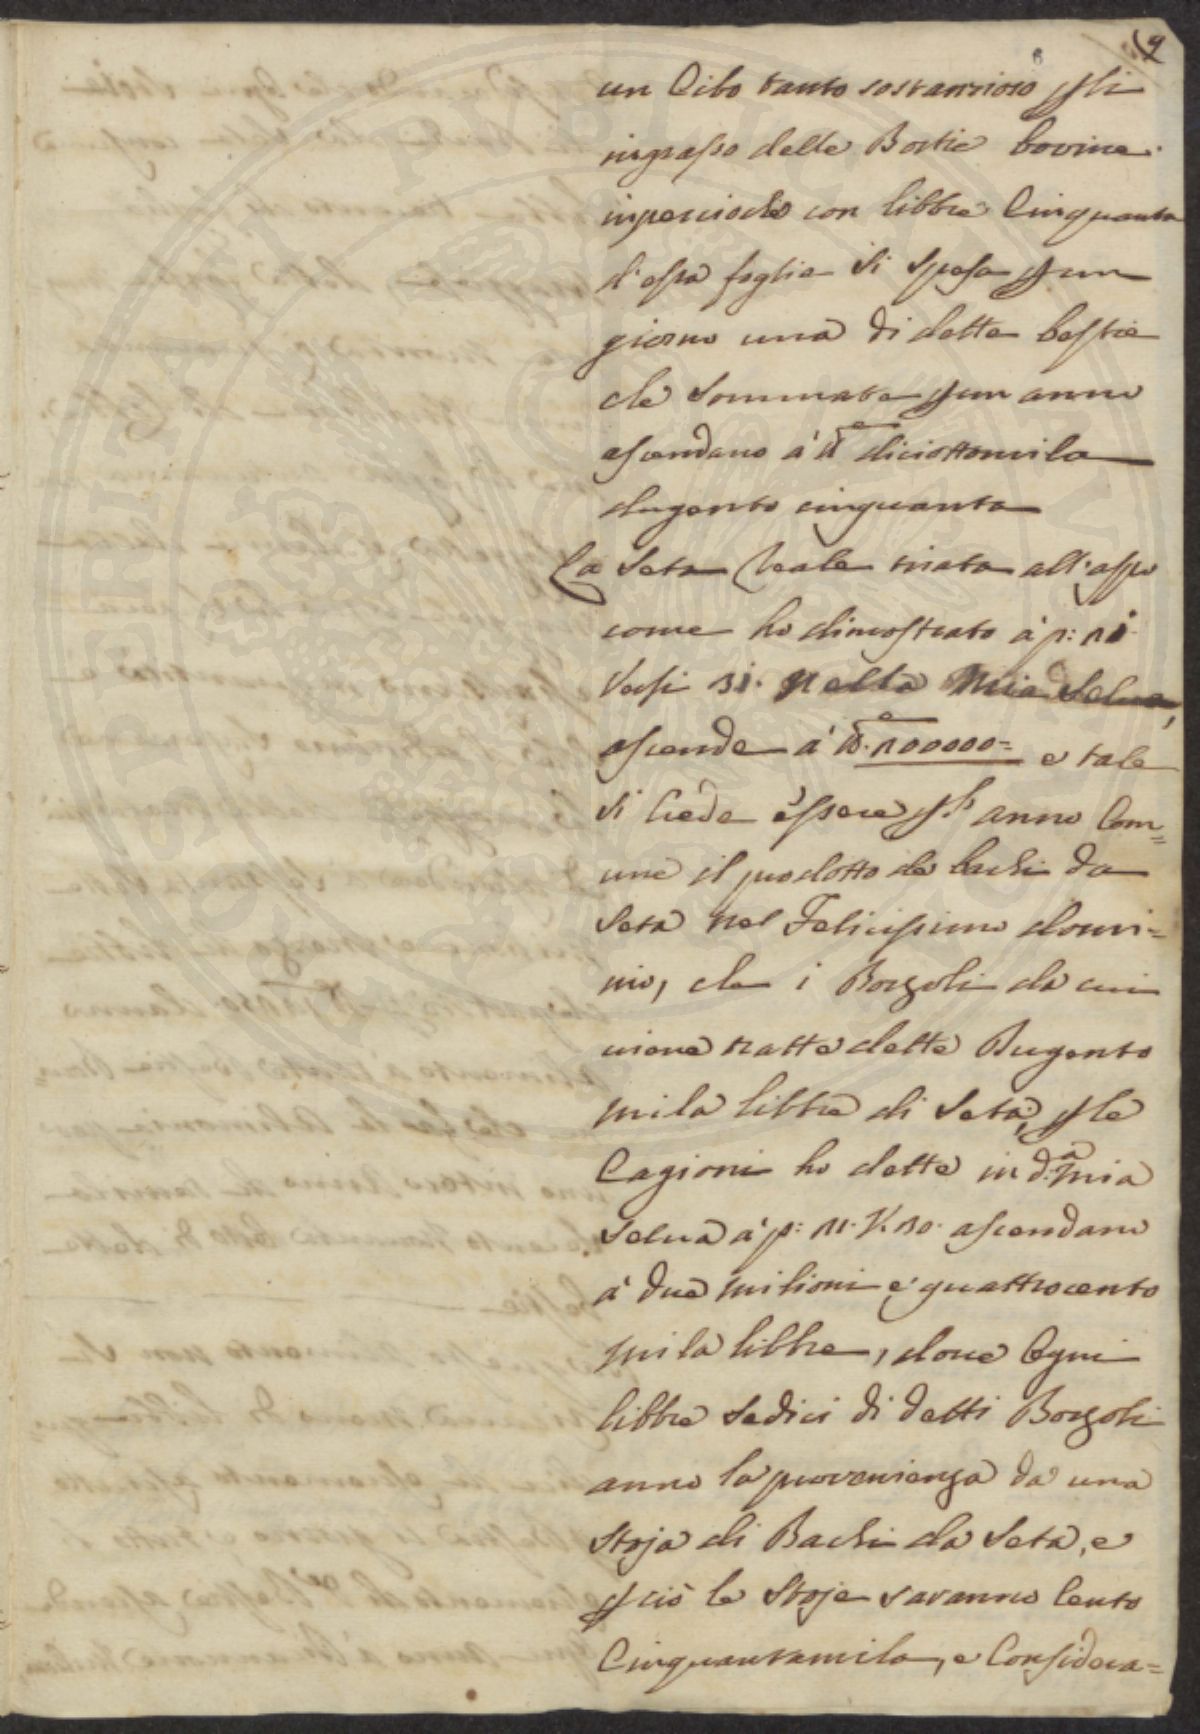 9
un Cibo tanto sostanzioso p li
ingrasso delle Bestie bovine
inperciochè con libbre Cinquanta
d'essa foglia si spesa p un
giorno una di dette bestie
che sommate p un anno
ascendano à diciottomila
dugento cinquanta
La Seta Reale tirata all'aspo
come ho dimostrato à p:
Versi nella Mia Selua,
ascende à 100000= e tale
si Crede essere p anno Com=
une il prodotto de bachi da
Seta nel Felicissimo domi=
nio, che i Bozzoli da cui
viene tratte dette Dugento
mila libbre di Seta, p le
Cagioni ho dette in d.a Mia
Selua à p: 11. V. 10. ascendano
à due milioni e quattrocento
mila libbre, doue Ogni
libbre Sedici di detti Bozzoli
anno la provenienza da una
Stoja di Bachi da Seta, e
p ciò le Stoje saranno Cento
Cinquantamila, e Considera=